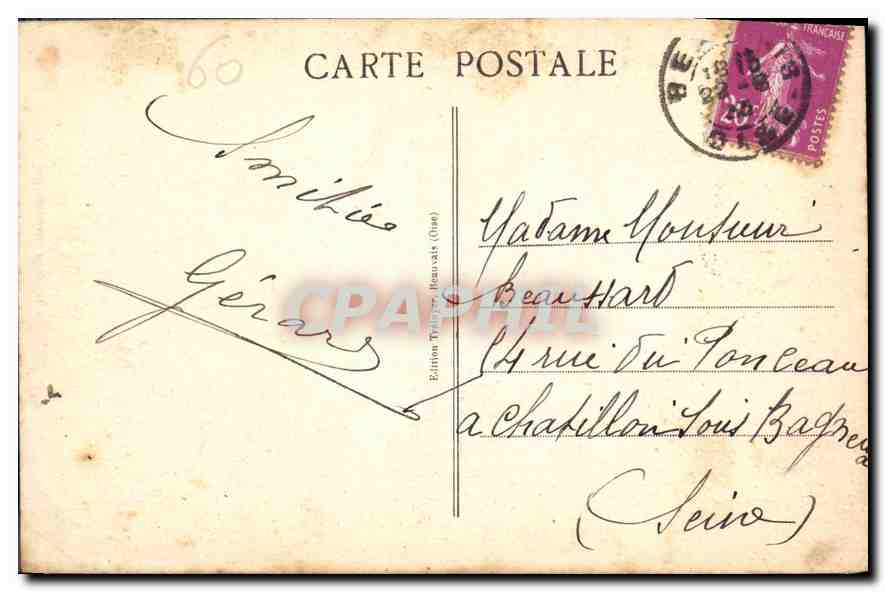 60
CARTE POSTALE
FRANÇAISE
20c
POSTES
Amitiés
Gérard
Edition Trainyer, Beauvais (Oise)
CPAPHIL
Madame Monsieur
Beaussard
14 rue du Ponceau
a Chatillon Sous Bagneux
(Seine)